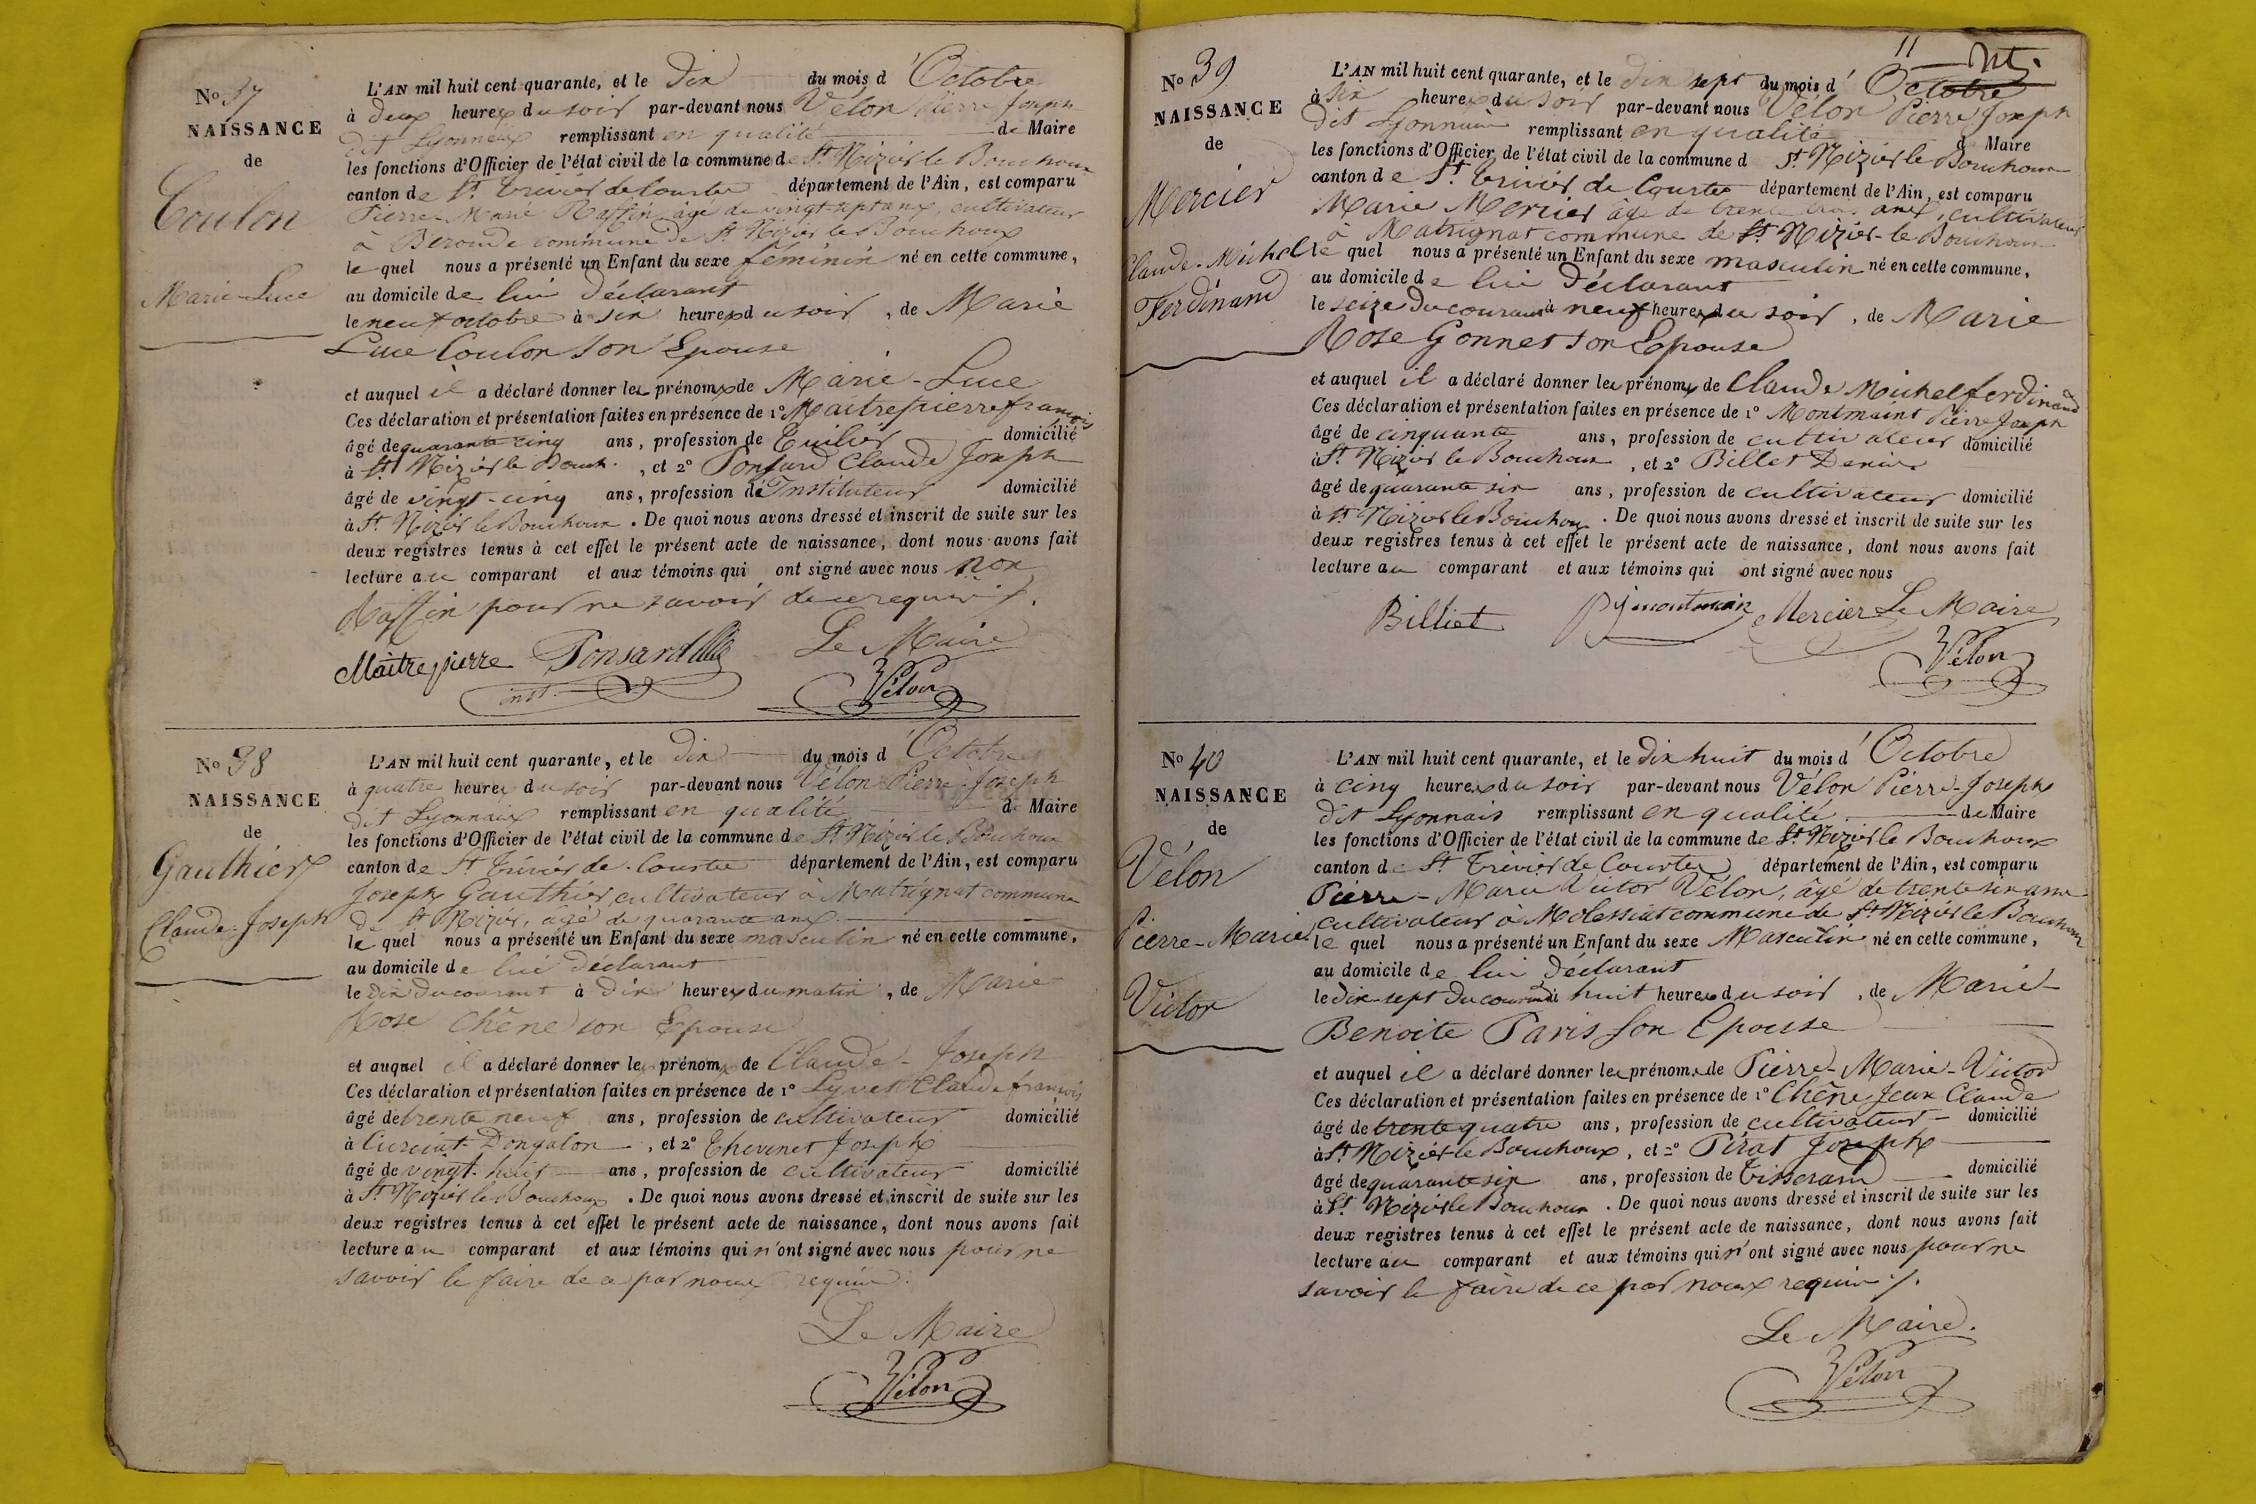 No 37
NAISSANCE
de
Coulon
Marie-Luce
L'AN mil huit cent quarante, et le Dix du mois d'Octobre
à deux heures du soir par-devant nous Vélon Pierre Joseph
dit Lyonnais remplissant en qualité de Maire
les fonctions d'Officier de l'état civil de la commune de St Nizier le Bouchoux
canton de St Trivier de Courtes département de l'Ain, est comparu
Pierre-Marie Raffin âgé de vingt-sept ans, cultivateur
à Béroude commune de St Nizier le Bouchoux
le quel nous a présenté un Enfant du sexe féminin né en cette commune,
au domicile de lui Déclarant
le neuf octobre à six heures du soir, de Marie
Luce Coulon son Epouse
et auquel il a déclaré donner les prénoms de Marie-Luce
Ces déclaration et présentation faites en présence de 1° Maitrepierre françois
âgé de quarante cinq ans, profession de Tuilier domicilié
à St Nizier le Bouch. , et 2° Ponsard Claude Joseph
âgé de vingt-cinq ans, profession d'Instituteur domicilié
à St Nizier le Bouchoux. De quoi nous avons dressé et inscrit de suite sur les
deux registres tenus à cet effet le présent acte de naissance, dont nous avons fait
lecture au comparant et aux témoins qui ont signé avec nous non
Raffin pour ne savoir de ce requis.
Maitrepierre Ponsard Le Maire
inst. Vélon
No 38
NAISSANCE
de
Gauthier
Claude-Joseph
L'AN mil huit cent quarante, et le Dix du mois d'Octobre
à quatre heures du soir par-devant nous Vélon Pierre-Joseph
dit Lyonnais remplissant en qualité de Maire
les fonctions d'Officier de l'état civil de la commune de St Nizier le Bouchoux
canton de St Trivier de Courtes département de l'Ain, est comparu
Joseph Gauthier, cultivateur à Matrignat commune
de St Nizier, âgé de quarante ans
le quel nous a présenté un Enfant du sexe masculin né en cette commune,
au domicile de lui Déclarant
le dix du courant à dix heures du matin, de Marie
Rose Chêne son Epouse
et auquel il a déclaré donner les prénoms de Claude-Joseph
Ces déclaration et présentation faites en présence de 1° Lyvet Claude françois
âgé de trente neuf ans, profession de cultivateur domicilié
à Curciat-Dongalon, et 2° Thevenet Joseph
âgé de vingt-huit ans, profession de cultivateur domicilié
à St Nizier le Bouchoux. De quoi nous avons dressé et inscrit de suite sur les
deux registres tenus à cet effet le présent acte de naissance, dont nous avons fait
lecture au comparant et aux témoins qui n'ont signé avec nous pour ne
savoir le faire de ce par nous requis.
Le Maire
Vélon
11
No 39
NAISSANCE
de
Mercier
Claude-Michel
Ferdinand
L'AN mil huit cent quarante, et le dix sept du mois d'Octobre
à six heures du soir par-devant nous Vélon Pierre Joseph
dit Lyonnais remplissant en qualité de Maire
les fonctions d'Officier de l'état civil de la commune d St Nizier le Bouchoux
canton de St Trivier de Courtes département de l'Ain, est comparu
Marie Mercier âgé de trente trois ans, cultivateur
à Matrignat commune de St Nizier-le Bouchoux
le quel nous a présenté un Enfant du sexe masculin né en cette commune,
au domicile de lui Déclarant
le seize du courant à neuf heures du soir, de Marie
Rose Gonnet son Epouse
et auquel il a déclaré donner les prénoms de Claude Michel ferdinand
Ces déclaration et présentation faites en présence de 1° Montmaint Pierre Joseph
âgé de cinquante ans, profession de cultivateur domicilié
à St Nizier le Bouchoux, et 2° Billet Denis
âgé de quarante six ans, profession de cultivateur domicilié
à St Nizier le Bouchoux. De quoi nous avons dressé et inscrit de suite sur les
deux registres tenus à cet effet le présent acte de naissance, dont nous avons fait
lecture au comparant et aux témoins qui ont signé avec nous
Billiet pj montmain Mercier Le Maire
Vélon
No 40
NAISSANCE
de
Vélon
Pierre-Marie
Victor
L'AN mil huit cent quarante, et le Dix huit du mois d'Octobre
à cinq heures du soir par-devant nous Vélon Pierre-Joseph
dit Lyonnais remplissant en qualité de Maire
les fonctions d'Officier de l'état civil de la commune de St Nizier le Bouchoux
canton de St Trivier de Courtes département de l'Ain, est comparu
Pierre-Marie Victor Vélon, âgé de trente six ans
cultivateur à Molessiat commune de St Nizier le Bouchoux
le quel nous a présenté un Enfant du sexe Masculin né en cette commune,
au domicile de lui Déclarant
le Dix-sept du courant à huit heures du soir, de Marie-
Benoite Paris son Epouse
et auquel il a déclaré donner les prénoms de Pierre-Marie-Victor
Ces déclaration et présentation faites en présence de 1° Chêne Jean Claude
âgé de trente quatre ans, profession de cultivateur domicilié
à St Nizier le Bouchoux, et 2° Pirat Joseph
âgé de quarante six ans, profession de Tisserand domicilié
à St Nizier le Bouchoux. De quoi nous avons dressé et inscrit de suite sur les
deux registres tenus à cet effet le présent acte de naissance, dont nous avons fait
lecture au comparant et aux témoins qui n'ont signé avec nous pour ne
savoir le faire de ce par nous requis.
Le Maire.
Vélon